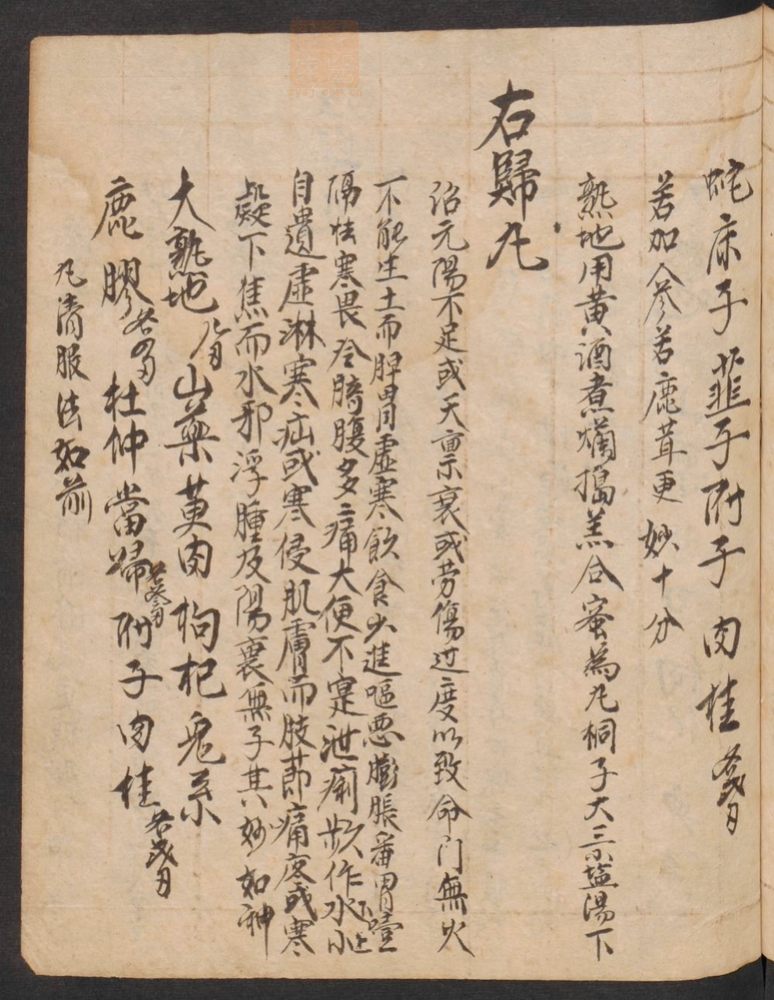 蛇床子 韮子 附子 肉桂 各貳両
若加人參若鹿茸更妙十分
熟地用黄酒煮爛搗羔合蜜為丸桐子大三錢塩湯下
右歸丸
治元陽不足或天禀衰或劳傷过度以致命门無火
不能生土而脾胃虚寒飲食少進嘔悪膨脹番胃噎
膈怯寒畏冷臍腹多多痛大便不寔泄痢頻作水小
自遺虚淋寒疝或寒侵肌膚而肢莭痛疼或寒
凝下焦而水邪浮腫及陽衰無子其妙如神
大熟地 八両 山藥 萸肉 枸杞 兔糸
鹿膠 各四両 杜仲 當歸 附子 肉桂 各貳両
丸清服法如前